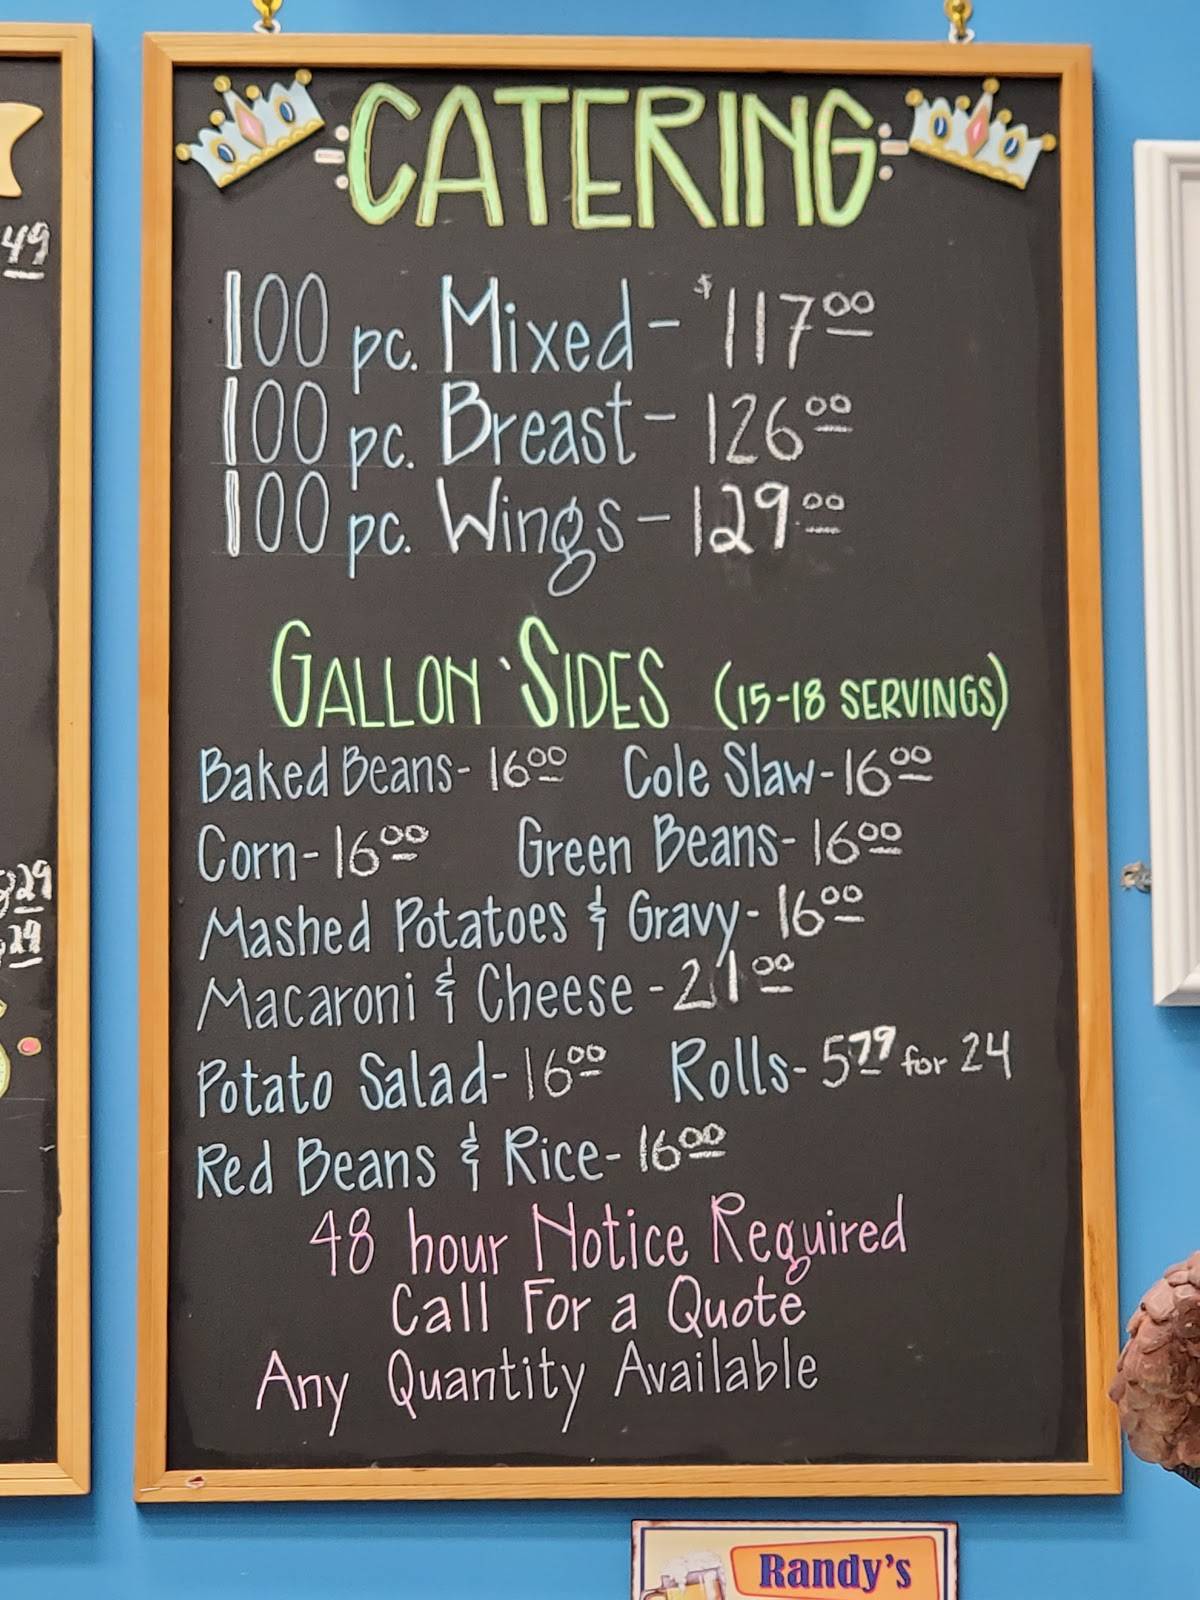 CATERING
100 pc. Mixed - $117.00
100 pc. Breast - 126.00
100 pc. Wings - 129.00
GALLON SIDES (15-18 SERVINGS)
Baked Beans - 16.00 Cole Slaw - 16.00
Corn - 16.00 Green Beans - 16.00
Mashed Potatoes & Gravy - 16.00
Macaroni & Cheese - 21.00
Potato Salad - 16.00 Rolls - 5.79 for 24
Red Beans & Rice - 16.00
48 hour Notice Required
Call For a Quote
Any Quantity Available
49
29
29
Randy's